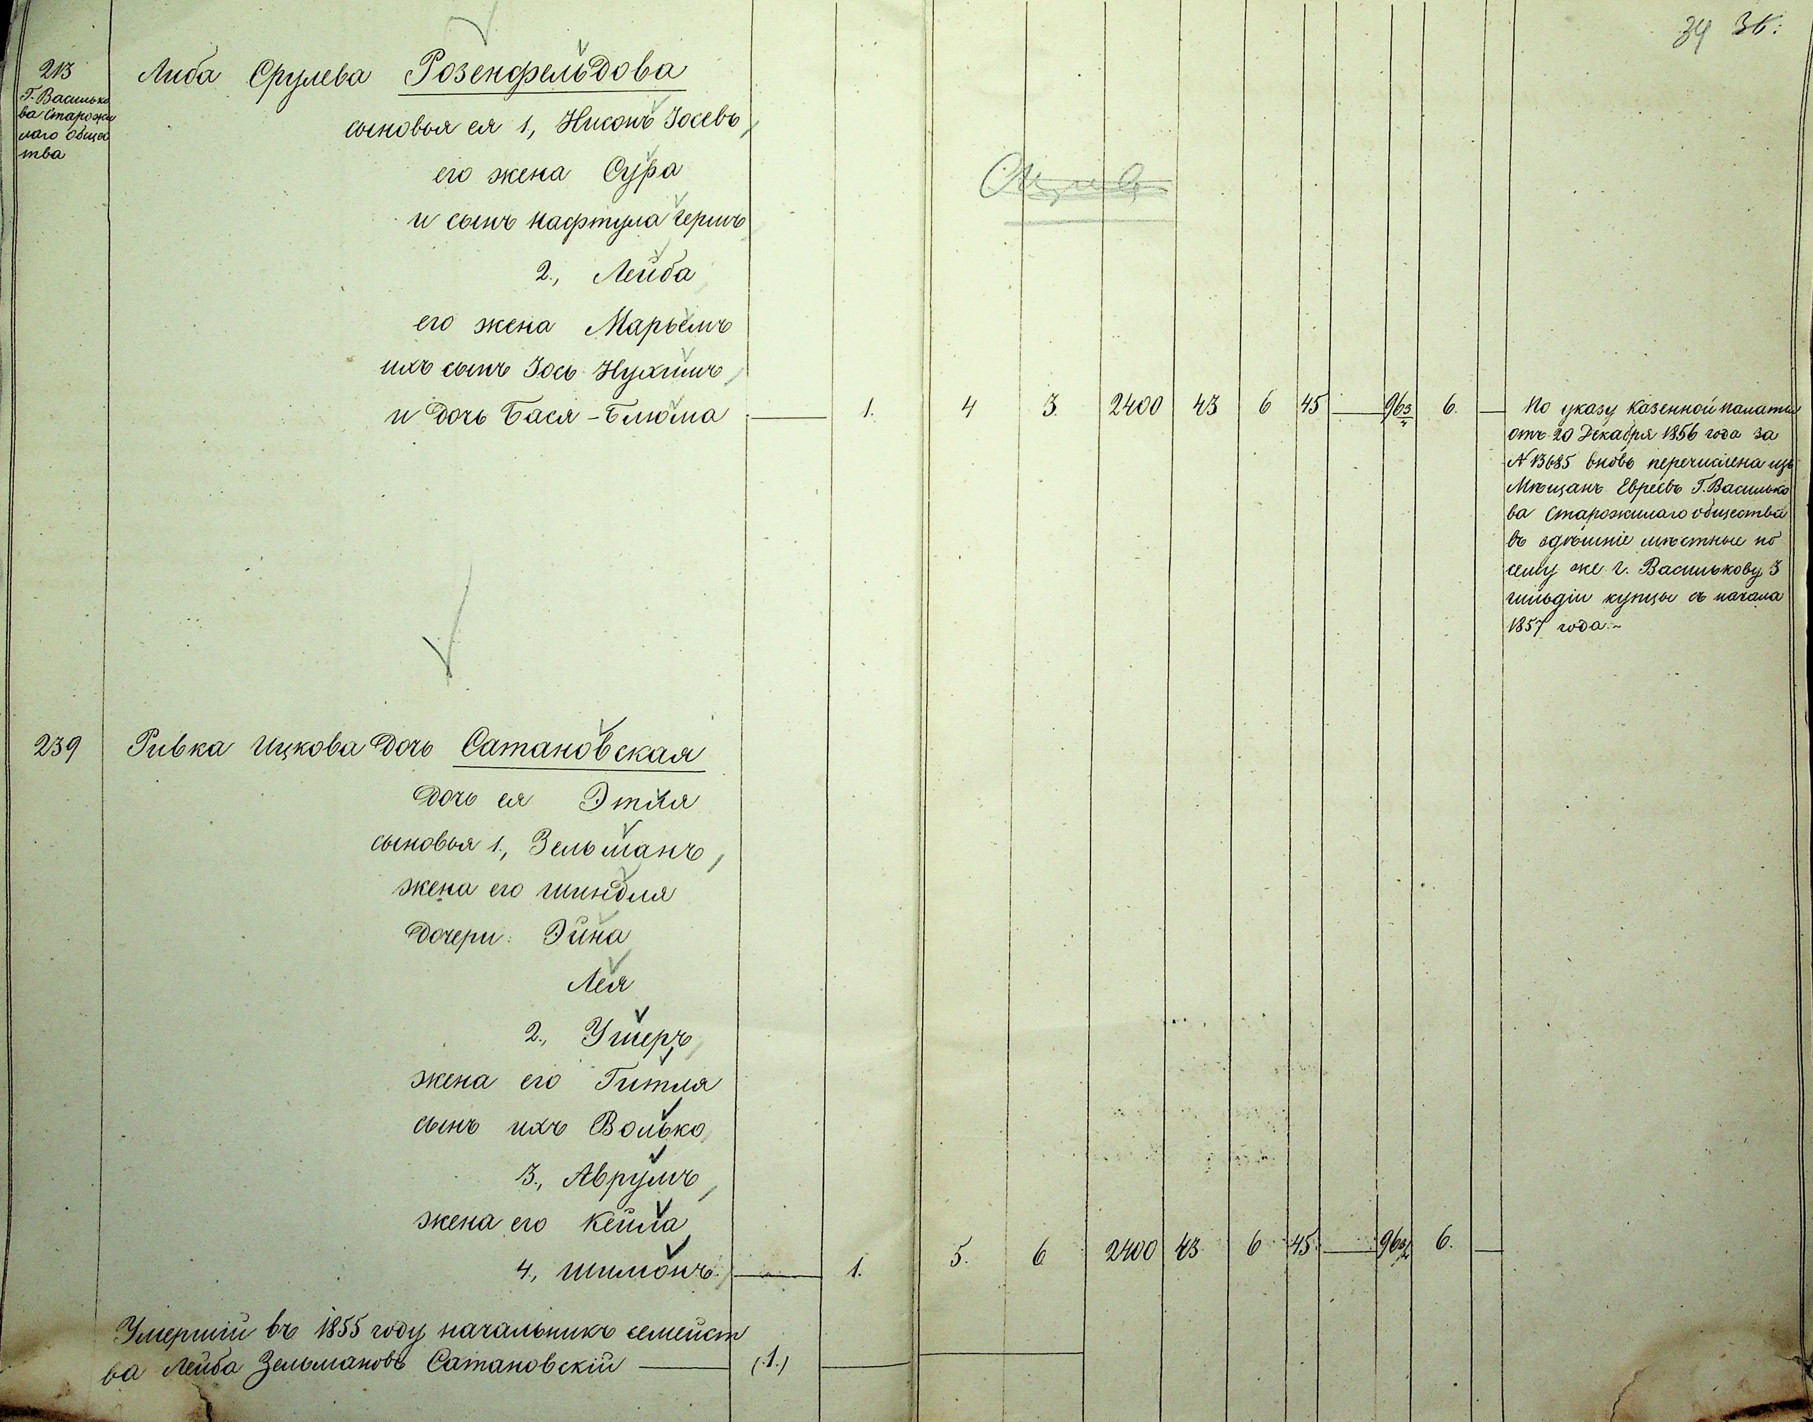 34 36:
213 Либа Срулева Розенфельдова
Г. Василько
ва Старожи
лаго общес
тва
сыновья ея 1, Нисонъ Іосевъ
его жена Сура
и сынъ Нафтула Гершъ
2., Лейба
его жена Марьемъ
ихъ сынъ Іось Нухимъ
и дочь Бася-Блюма — 1. 4 3. 2400 43 6 45 — 96 3/4 6. —
По указу Казенной палаты
отъ 20 Декабря 1856 года за
N 13685 вновь перечислена изъ
Мѣщанъ Евреевъ Г. Василько
ва Старожилаго общества
въ здѣшніе мѣстные по
сему же г. Василькову 3
гильдіи купцы съ начала
1857 года.
239 Ривка Ицкова дочь Сатановская
дочь ея Этля
сыновья 1., Зельманъ
жена его Шиндля
дочери: Эйна
Лея
2., Ушеръ
жена его Гитля
сынъ ихъ Волько
3., Аврумъ
жена его Кейла
4., Шимонъ. — 1. 5. 6 2400 43 6 45 — 96 3/4 6. —
Умершій въ 1855 году начальникъ семейст
ва Лейба Зельмановъ Сатановскій — (1.)